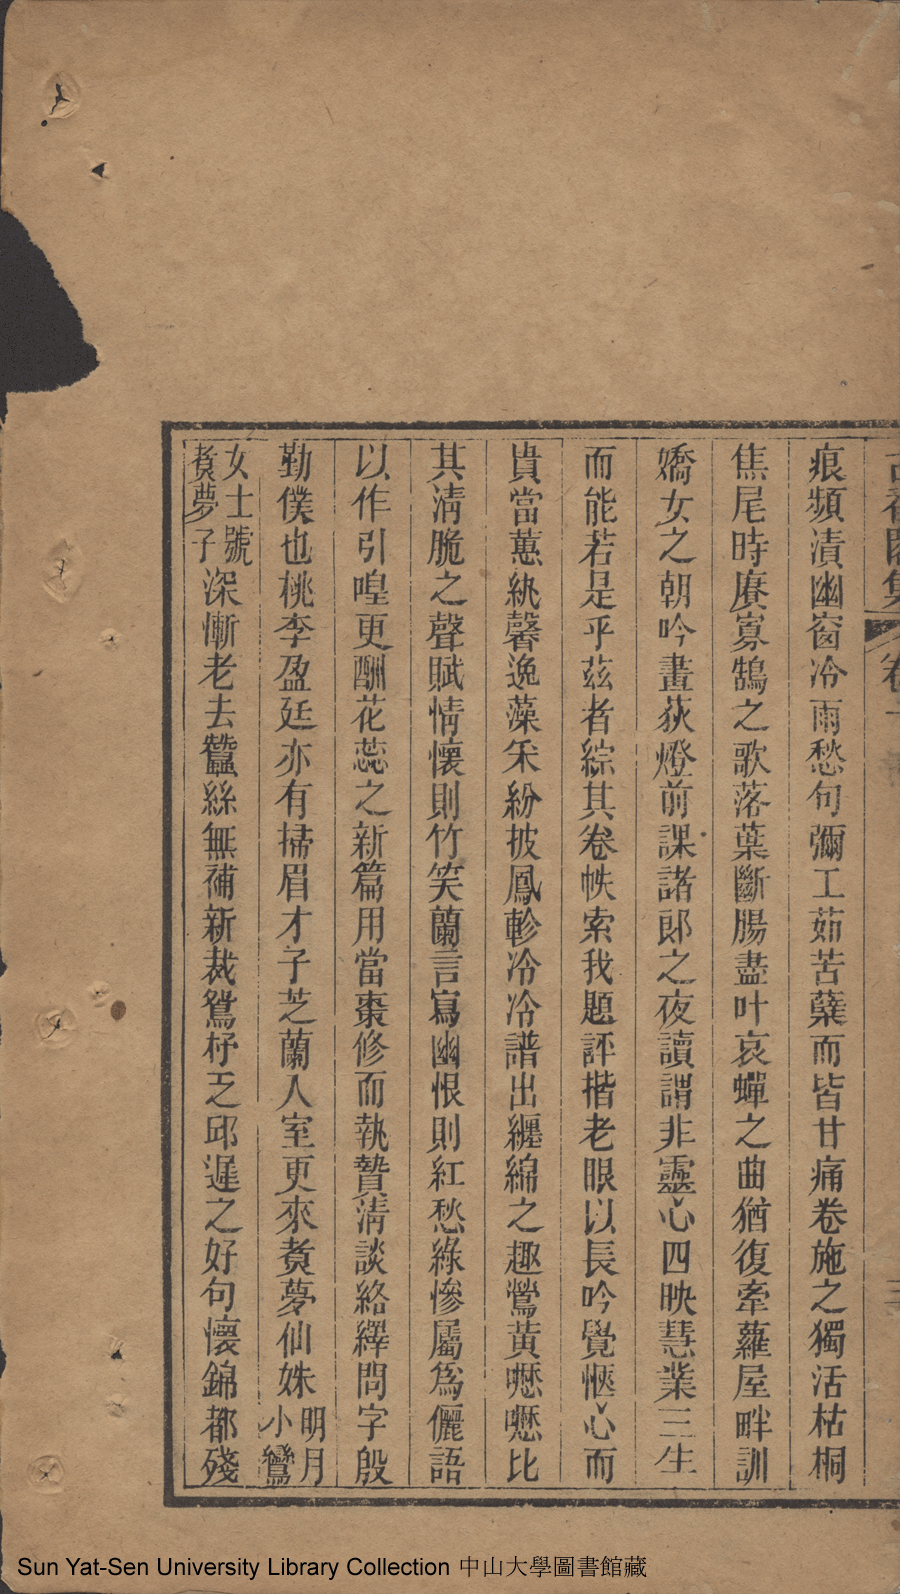 痕頻漬幽窗冷雨愁句彌工茹苦蘗而皆甘痛卷施之獨活枯桐
焦尾時賡寡鵠之歌落葉斷腸盡叶哀蟬之曲猶復牽蘿屋畔訓
嬌女之朝吟畫荻燈前課諸郎之夜讀謂非靈心四映慧業三生
而能若是乎茲者綜其卷帙索我題評揩老眼以長吟覺愜心而
貴當蕙紈馨逸藻采紛披鳳軫泠泠譜出纏綿之趣鶯黃嚦嚦比
其淸脆之聲賦情懷則竹笑蘭言寫幽恨則紅愁綠慘屬爲儷語
以作引喤更酬花蕊之新篇用當棗修而執贄淸談絡繹問字殷
勤僕也桃李盈廷亦有掃眉才子芝蘭入室更來賚夢仙姝明月小鸞
女士號賚夢子深慚老去蠶絲無補新裁鴛杼乏邱遲之好句懷錦都殘
Sun Yat-Sen University Library Collection 中山大學圖書館藏